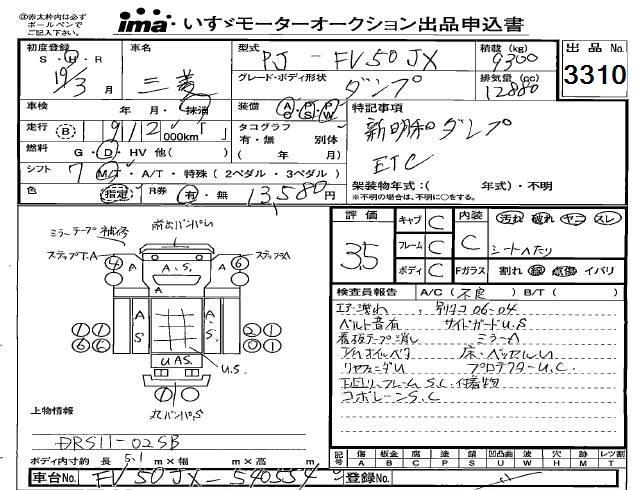 ①赤太枠内は必ず
ボールペンで
ご記入下さい。
ima いすゞモーターオークション出品申込書
初度登録 S・H・R 19/3 月
車名 三菱
型式 PJ - FV50JX
積載 (kg) 9300
出品No. 3310
グレード・ボディ形状 ダンプ
排気量 (cc) 12880
車検 年 月・抹消
装備 A/C P/S P/W
特記事項
新明和ダンプ
ETC
走行 B 1912 000km「 」
タコグラフ 有・無 別体 ( 年 月)
燃料 G・D・HV 他( )
シフト 7 M/T・A/T・特殊 (2ペダル・3ペダル)
架装物年式:( 年式)・不明
※不明の場合は、不明に○をする。
色 指定 R券 有・無 13,580円
評価 3.5
キャブ C
フレーム C
ボディ C
内装 C
汚れ 破れ ヤニ スレ
シートヘたり
Fガラス 割れ 線 点傷 イバリ
ミラーテープ補修
前出バンパレ
ステップT.A
ステップA
4 A.S 6
A
A S
A S
U.A.S.
U.S.
九バンパS
検査員報告 A/C(不良) B/T( )
エアー洩れ 別タコ06-04
ベルト音有 サイドガードU.S
看板テープ消し ミラーA
T/Mオイルベタ 床・ベッセルU
リヤフェンダU プロテクターU.C
下回り、フレームS.C.付着物
コボレーンS.C
上物情報
DRS11-02SB
ボディ内寸約 長 5.1 m×幅 m×高 m
記号 傷 A 板金 B 腐 C 塗 P 錆 S 凹凸曲 U 波 W 穴 H 跡 M レツ割 T
車台No. FV50JX-540554
登録No.